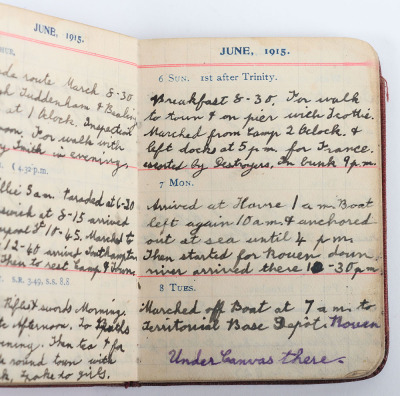 JUNE, 1915.
route March 8-30
Tuddenham & Bealing
at 1 Oclock. Inspection
For walk with
Smith in evening.
4.32 p.m.
3 am. Paraded at 6-30
at 8-15 arrived
10-45. Marched to
12-40 arrived Southampton
Then to rest Camp &
s.r. 3.49, s.s. 8.8
Rifles & swords Morning.
Afternoon. To
Then tea & for
round town with
Spoke to girls.
JUNE, 1915.
6 SUN. 1st after Trinity.
Breakfast 8-30. For walk
to town & on pier with Scottie.
Marched from Camp 2 Oclock. &
left docks at 5 p.m for France.
escorted by Destroyers, In bunk 9 p.m.
7 MON.
Arrived at Havre 1 a.m. Boat
left again 10 a.m & anchored
out at sea until 4 pm
Then started for Rouen down
river arrived there 10-30 p.m.
8 TUES.
Marched off Boat at 7 a.m. to
Territorial Base Depot. Rouen
Under Canvas there.